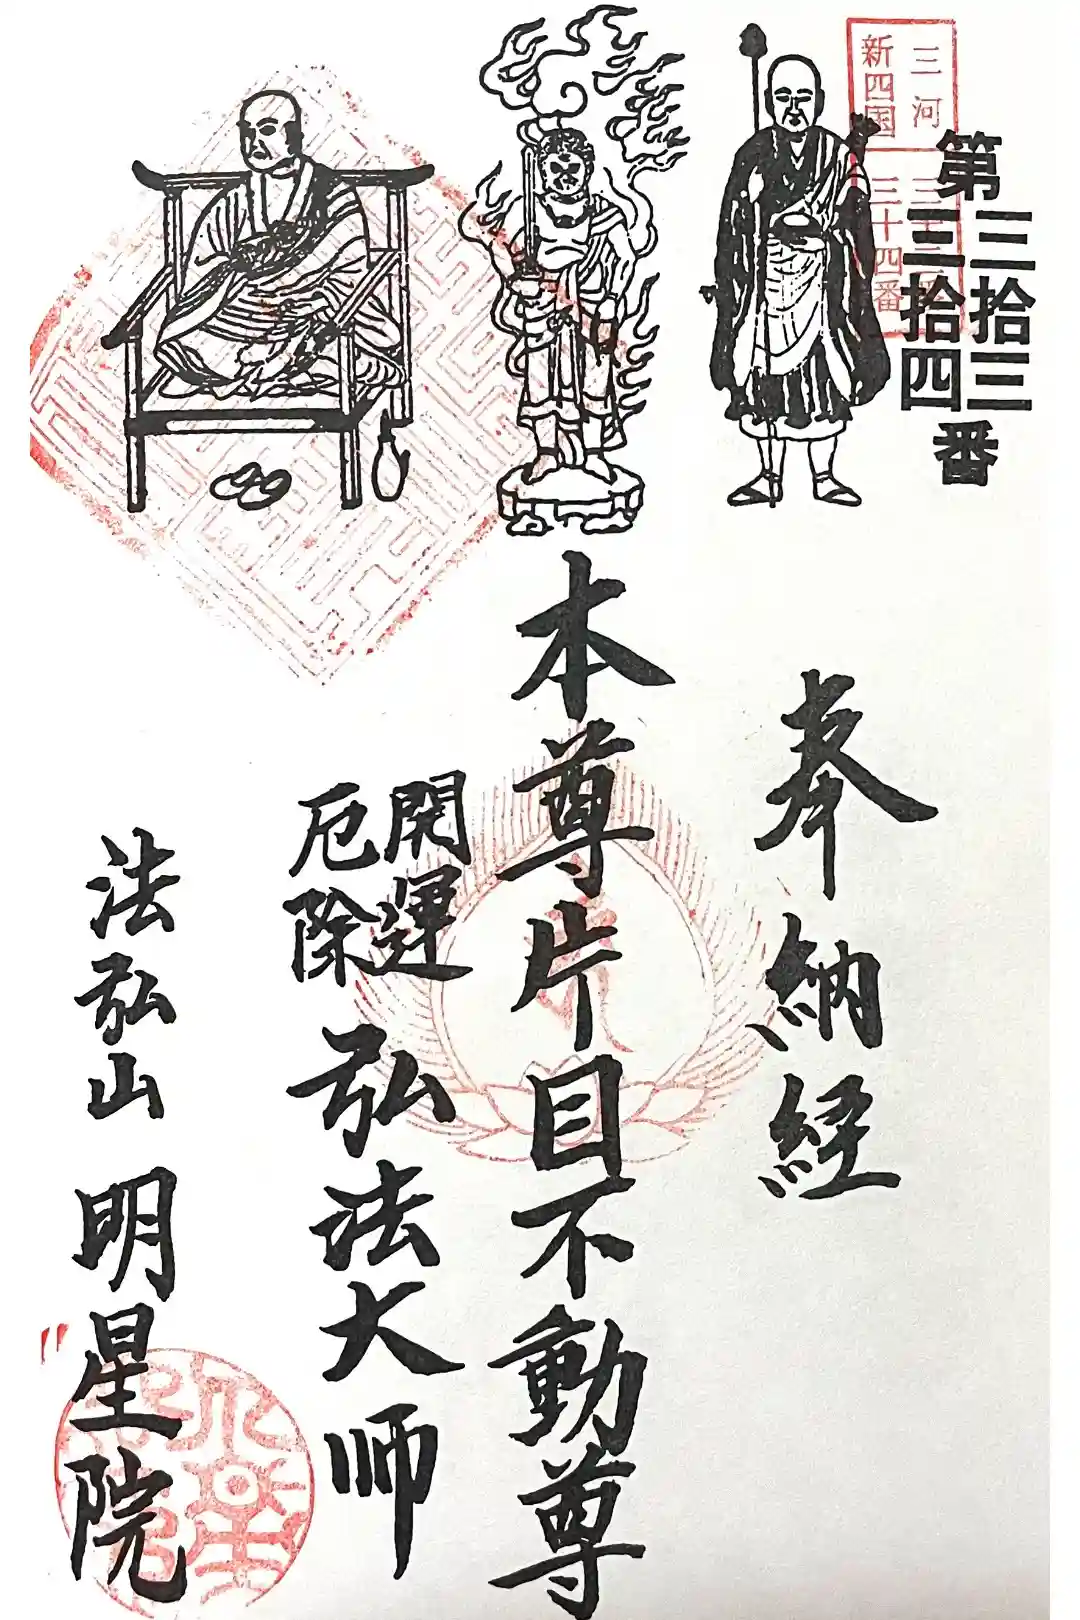 第
三拾三
三拾四
番
三河
新四国
三十四番
奉納経
本尊片目不動尊
開運
厄除
弘法大师
法弘山 明星院